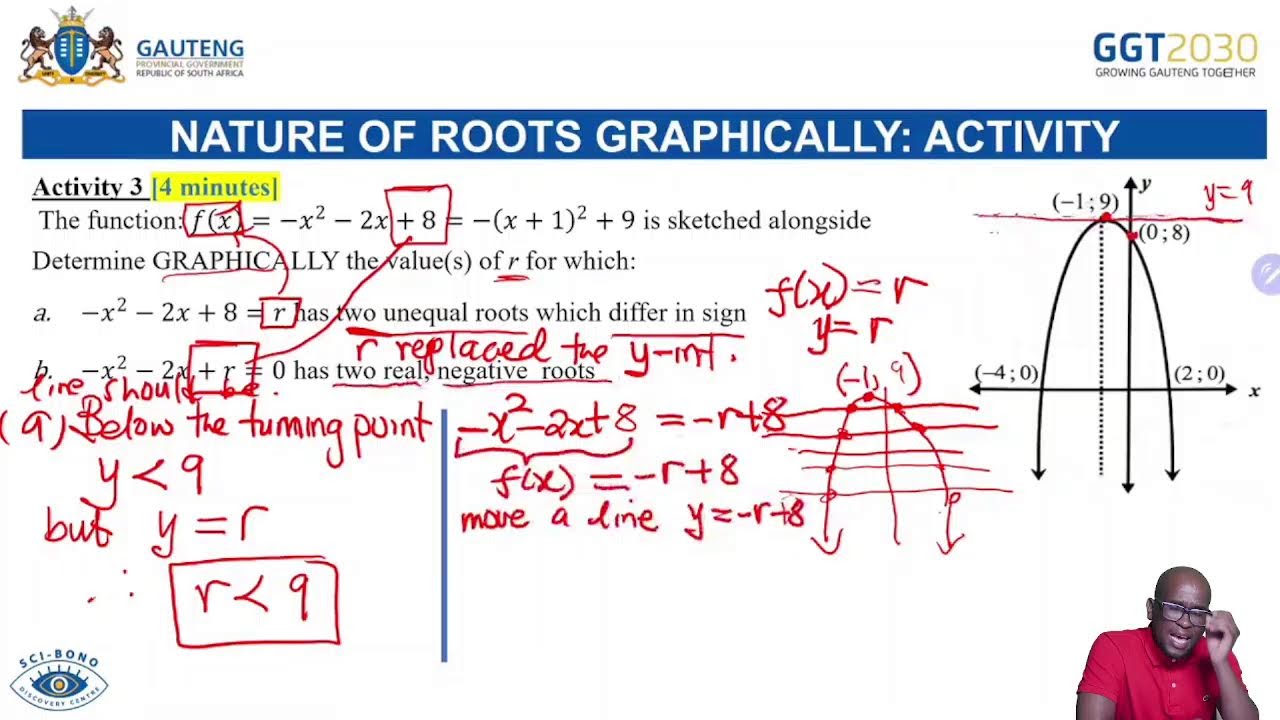 GAUTENG
PROVINCIAL GOVERNMENT
REPUBLIC OF SOUTH AFRICA
GGT2030
GROWING GAUTENG TOGETHER
NATURE OF ROOTS GRAPHICALLY: ACTIVITY
Activity 3 [4 minutes]
The function: f(x) = −x² − 2x + 8 = −(x + 1)² + 9 is sketched alongside
Determine GRAPHICALLY the value(s) of r for which:
a. −x² − 2x + 8 = r has two unequal roots which differ in sign
r replaced the y-int.
b. −x² − 2x + r = 0 has two real, negative roots
line should be.
(a) Below the turning point
y < 9
but y = r
∴ r < 9
f(x) = r
y = r
−x²−2x+8 = −r+8
f(x) = −r+8
move a line y=−r+8
(−1, 9)
y=9
y
(−1 ; 9)
(0 ; 8)
(−4 ; 0)
(2 ; 0)
x
SCI-BONO
DISCOVERY CENTRE